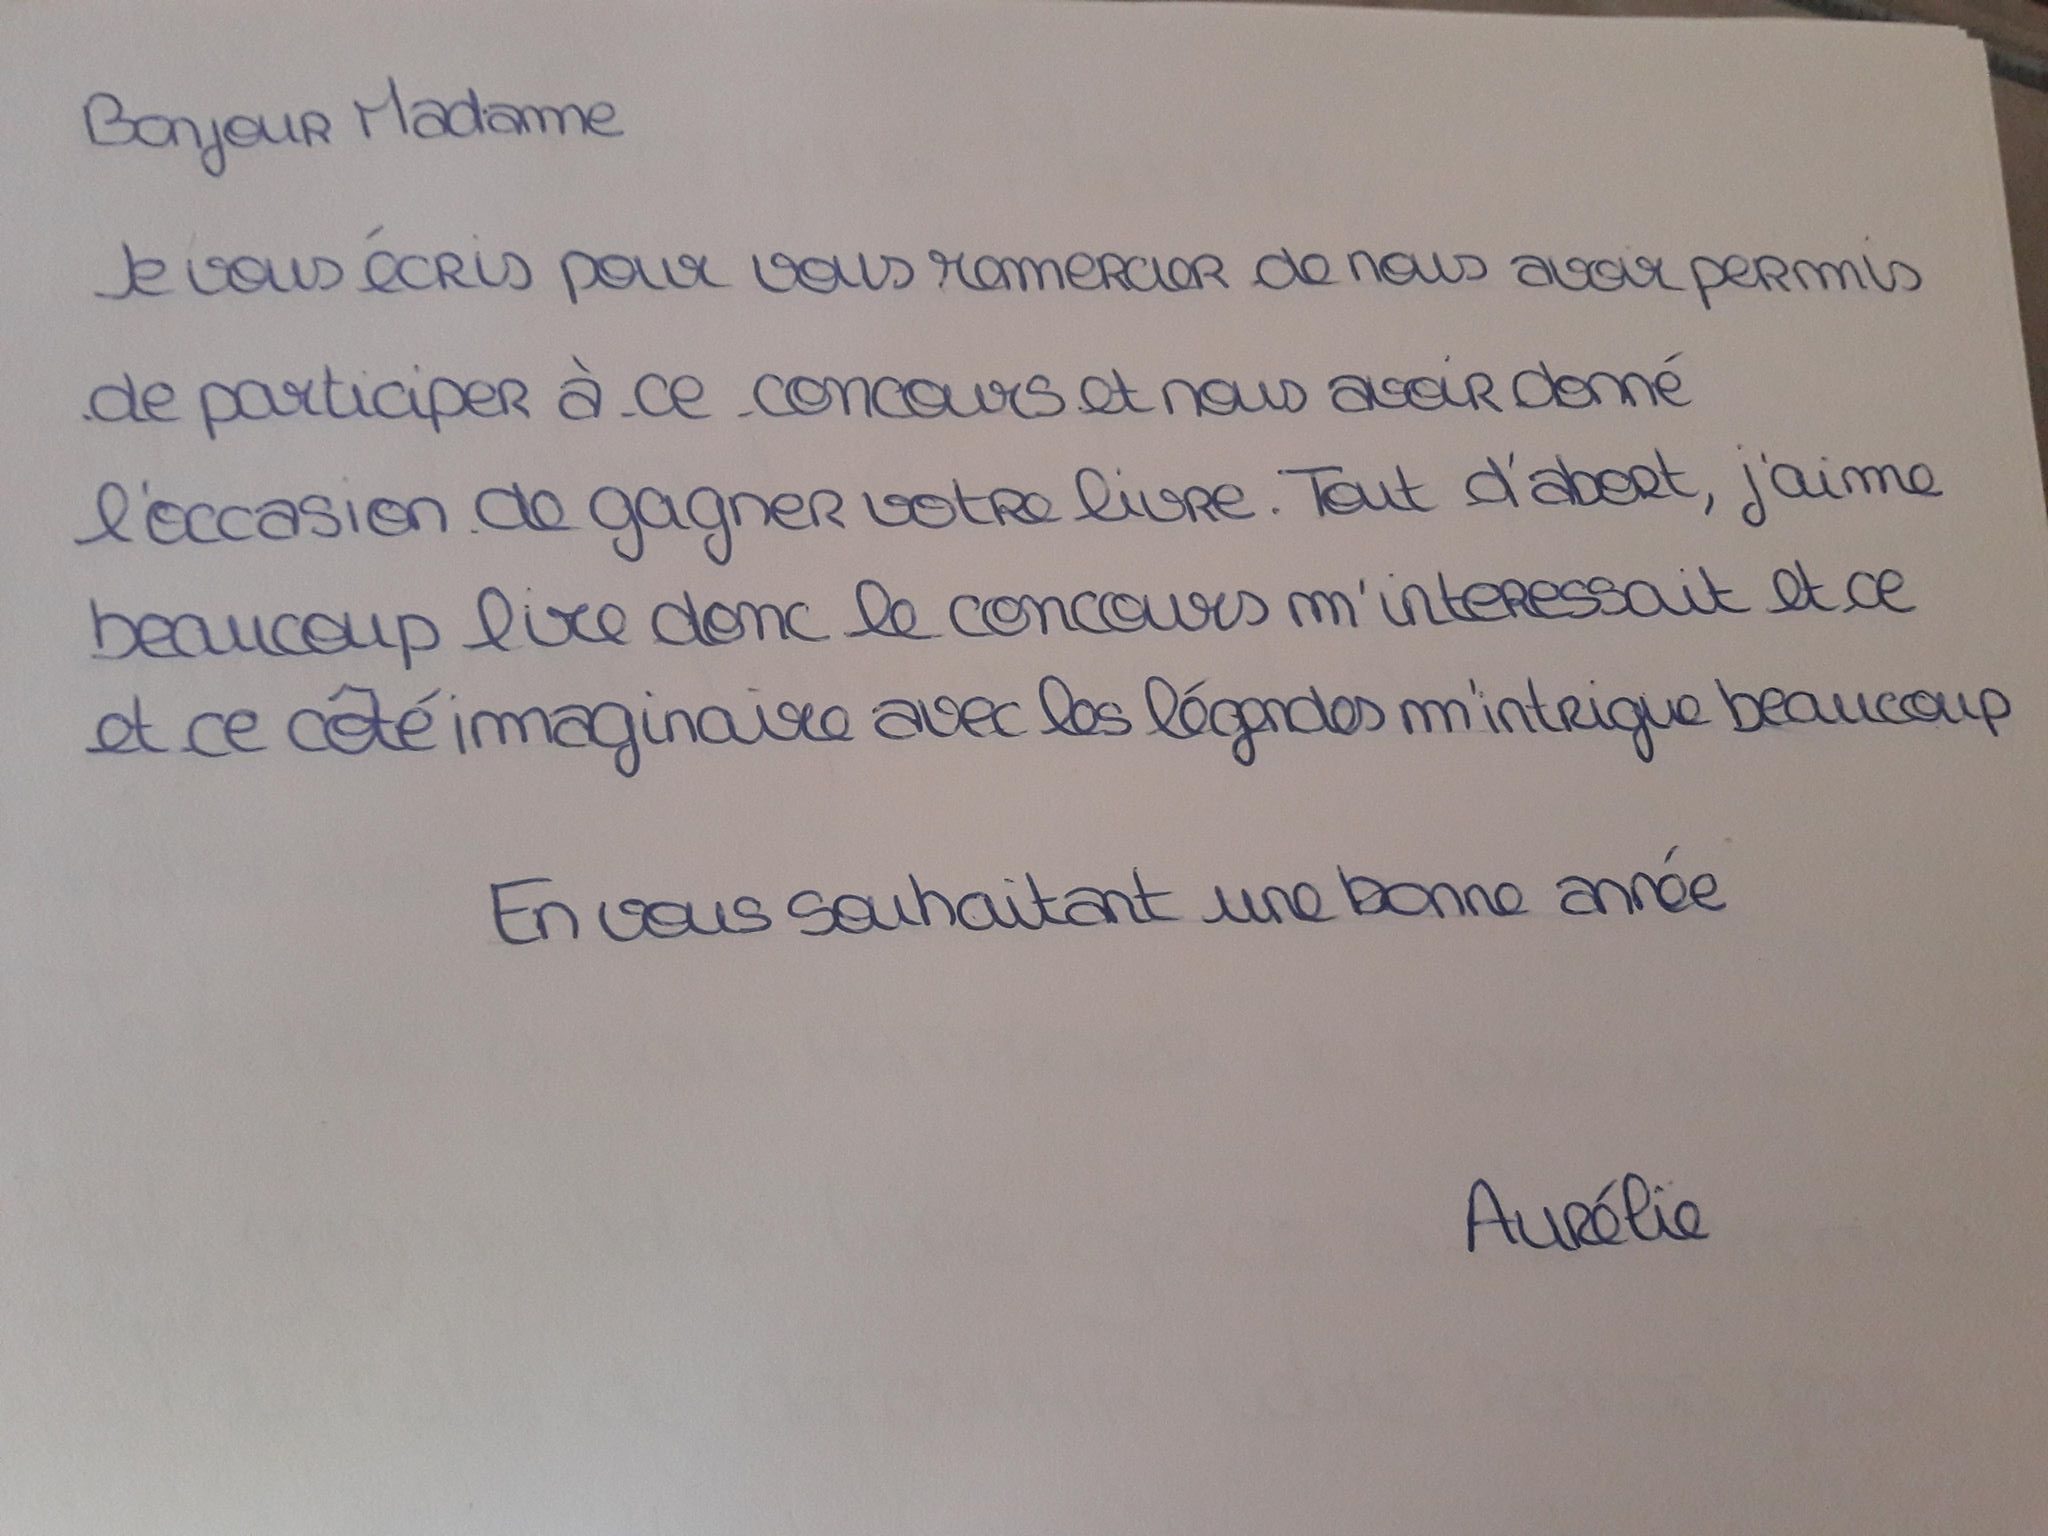 Bonjour Madame
Je vous écris pour vous remercier de nous avoir permis
de participer à ce concours et nous avoir donné
l'occasion de gagner votre livre. Tout d'abort, j'aime
beaucoup lire donc le concours m'interessait et ce
et ce côté immaginaire avec les légendes m'intrigue beaucoup
En vous souhaitant une bonne année
Aurélie